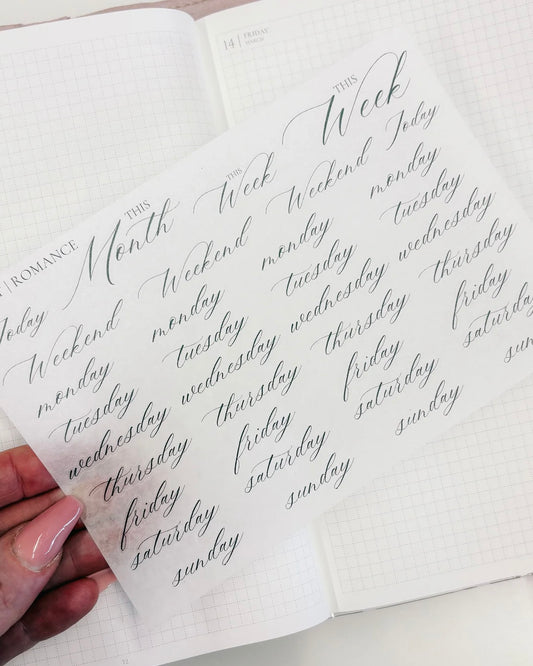 14 | FRIDAY
MARCH
| ROMANCE
THIS
Month
THIS
Week
THIS
Week
Today
Weekend
monday
tuesday
wednesday
thursday
friday
saturday
sunday
Weekend
monday
tuesday
wednesday
thursday
friday
saturday
sunday
Weekend
monday
tuesday
wednesday
thursday
friday
saturday
sunday
Today
monday
tuesday
wednesday
thursday
friday
saturday
12